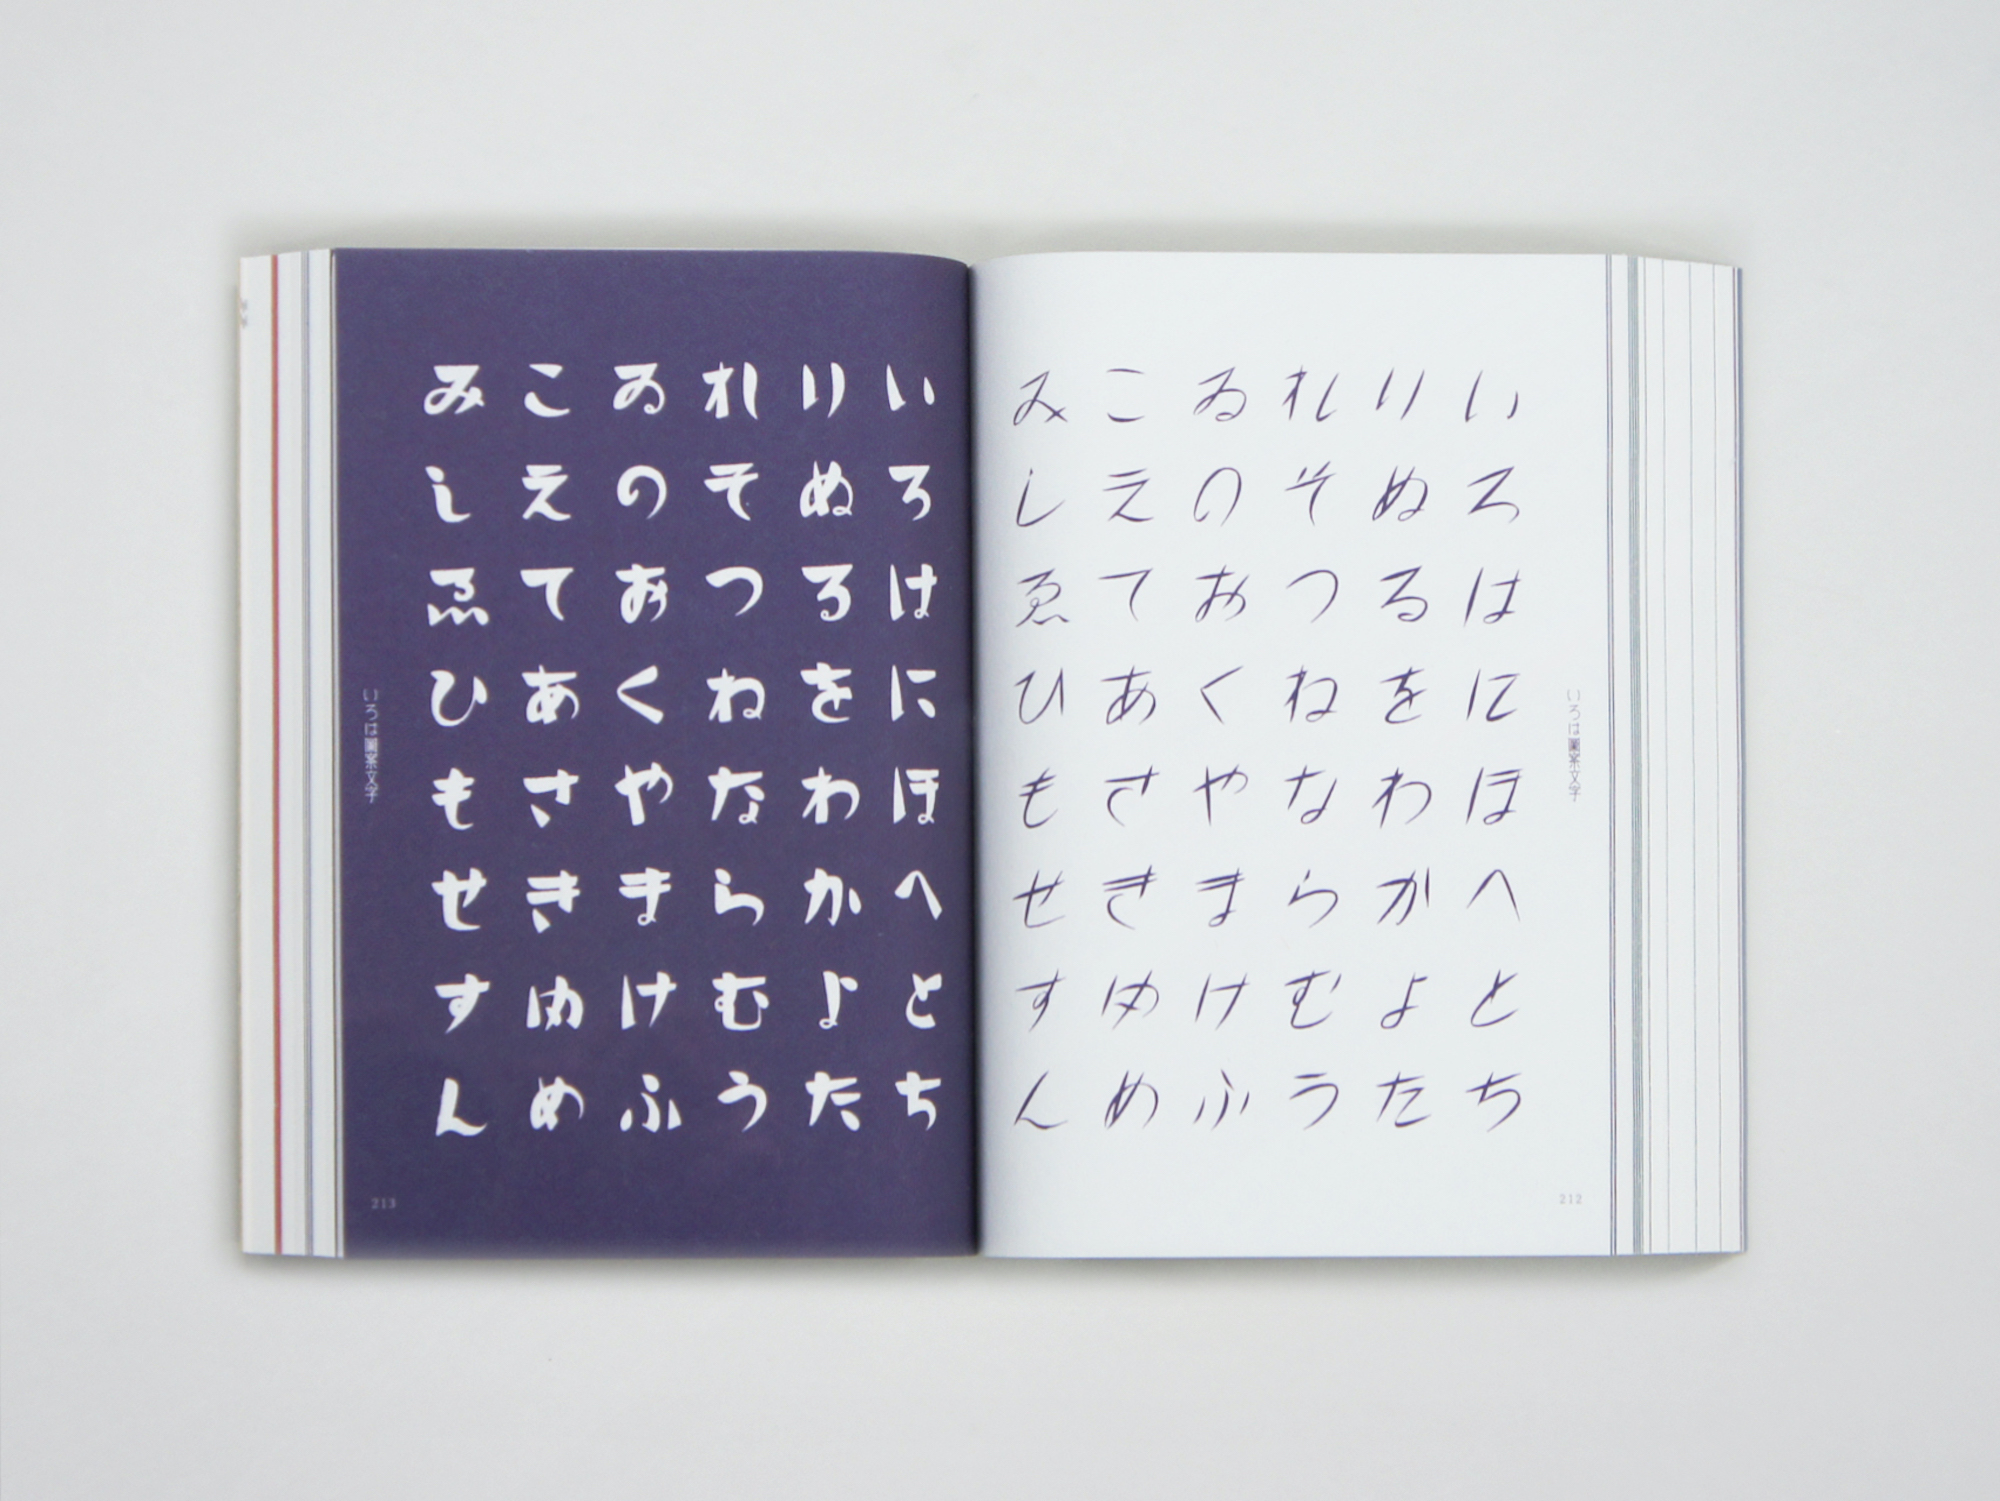 いろは圖案文字
いろはにほへとち
りぬるをわかよた
れそつねならむう
ゐのおくやまけふ
こえてあさきゆめ
みしゑひもせすん
212
いろはにほへとち
りぬるをわかよた
れそつねならむう
ゐのおくやまけふ
こえてあさきゆめ
みしゑひもせすん
いろは圖案文字
213